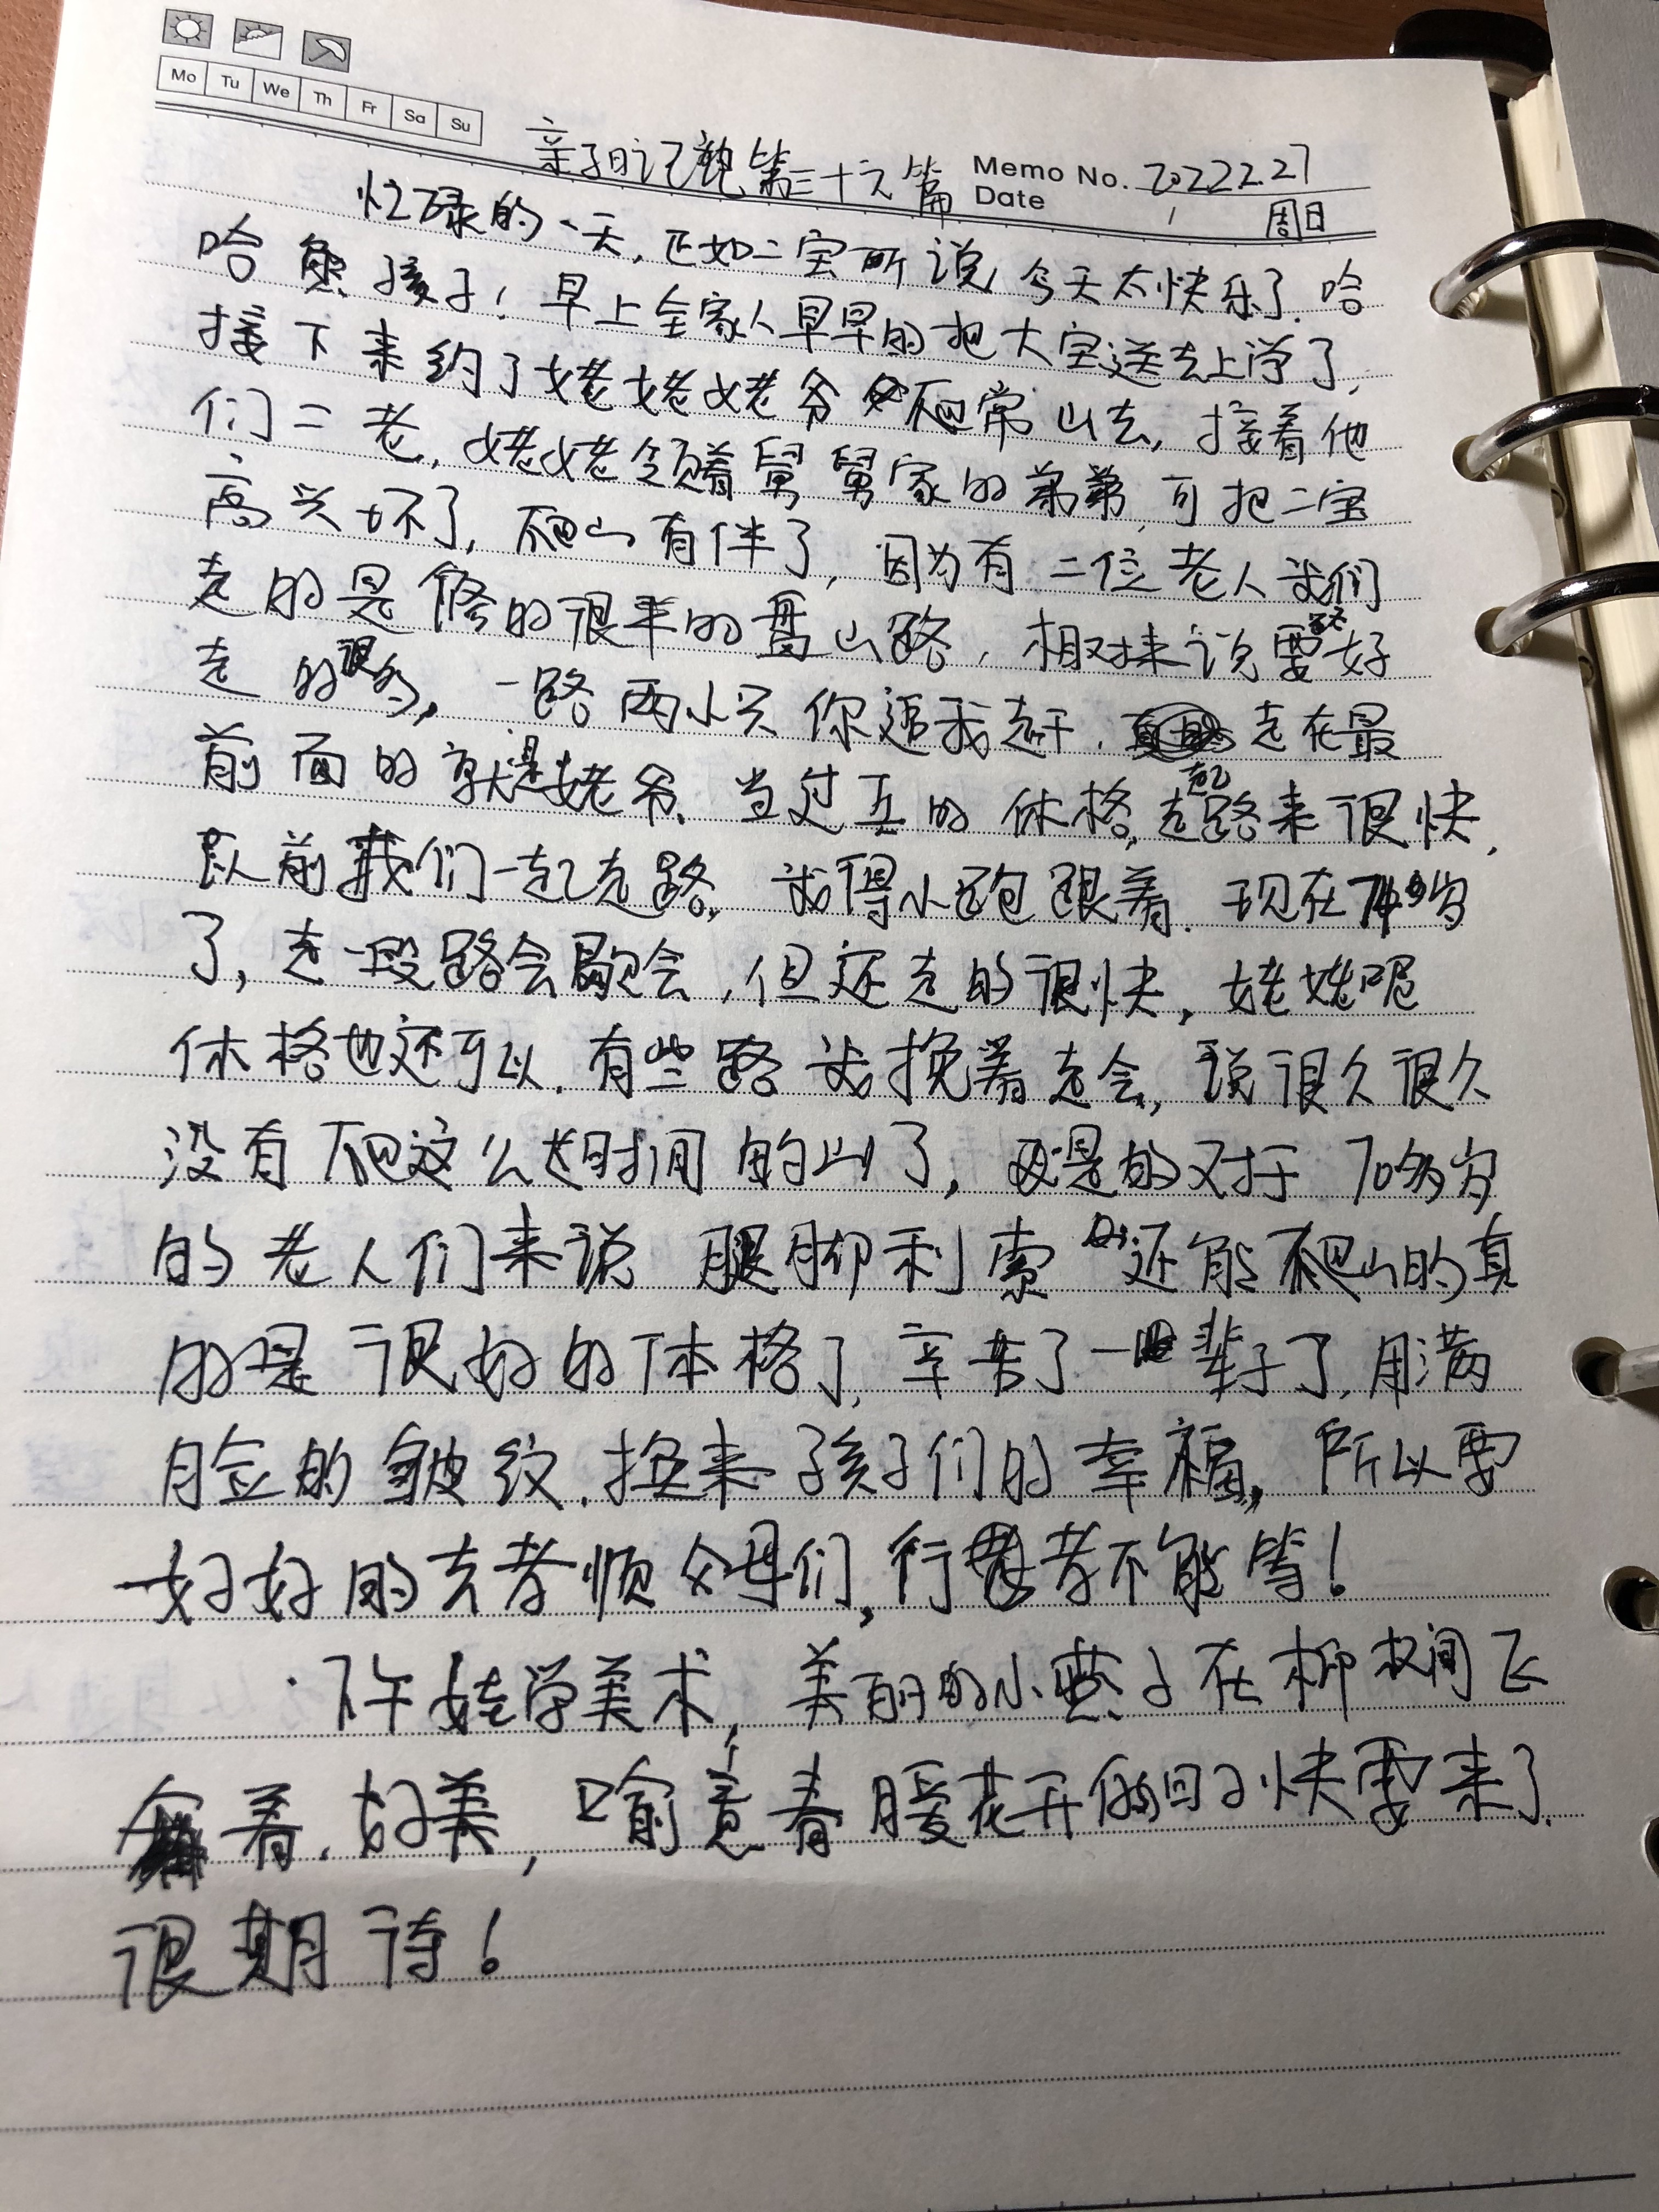 Mo Tu We Th Fr Sa Su
亲子日记第三十六篇 Memo No. 2022.2.27
Date 周日
忙碌的一天,正如二宝所说,今天太快乐了.哈
哈 熊孩子!早上全家人早早的把大宝送去上学了,
接下来约了姥姥姥爷爬常山去,接着他
们二老,姥姥领着舅舅家的弟弟,可把二宝
高兴坏了,爬山有伴了,因为有二位老人我们
走的是修的很平的盘山路,相对来说要好
走的很多,一路两小只你追我赶.走在最
前面的就是姥爷.当过兵的体格,走起路来很快,
以前我们一起走路,我得小跑跟着.现在74岁
了,走一段路会歇会,但还走的很快,姥姥呢
体格也还可以.有些路我挽着走会,说很久很久
没有爬这么长时间的山了,对于70多岁
的老人们来说 腿脚利索 还能爬山的真
的是很好的体格了,辛苦了一辈子了,用满
脸的皱纹,换来孩子们的幸福,所以要
好好的去孝顺父母们,行孝不能等!
下午娃学美术,美丽的小燕子在柳枝间飞
着,好美,喻意春暖花开的日子快要来了.
很期待!